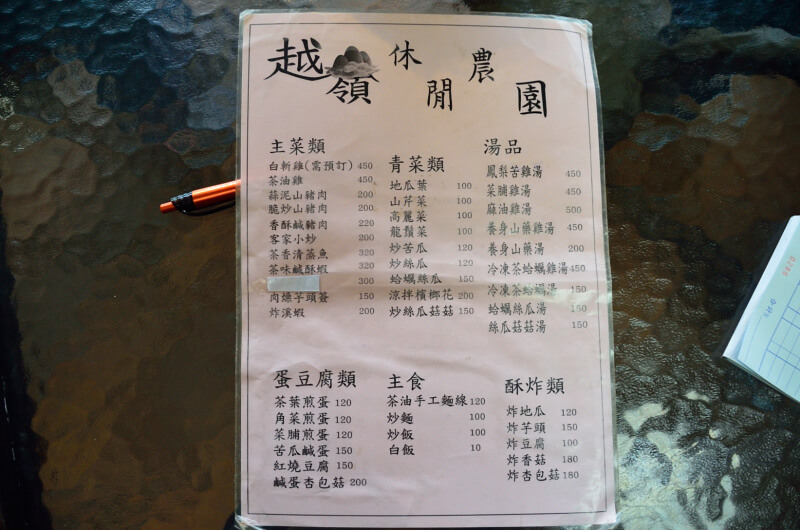 越嶺休閒農園
主菜類
白斬雞(需預訂) 450
茶油雞 450
蒜泥山豬肉 200
脆炒山豬肉 200
香酥鹹豬肉 220
客家小炒 200
茶香清蒸魚 320
茶味鹹酥蝦 320
300
肉燥芋頭簽 150
炸溪蝦 200
青菜類
地瓜葉 100
山芹菜 100
高麗菜 100
龍鬚菜 100
炒苦瓜 120
炒絲瓜 120
蛤蠣絲瓜 150
涼拌檳榔花 200
炒絲瓜菇菇 150
湯品
鳳梨苦雞湯 450
菜脯雞湯 450
麻油雞湯 500
養身山藥雞湯 450
養身山藥湯 200
冷凍茶蛤蠣雞湯 450
冷凍茶蛤蠣湯 150
蛤蠣絲瓜湯 150
絲瓜菇菇湯 150
蛋豆腐類
茶葉煎蛋 120
角菜煎蛋 120
菜脯煎蛋 120
苦瓜鹹蛋 150
紅燒豆腐 150
鹹蛋杏包菇 200
主食
茶油手工麵線 120
炒麵 100
炒飯 100
白飯 10
酥炸類
炸地瓜 120
炸芋頭 150
炸豆腐 100
炸香菇 180
炸杏包菇 180